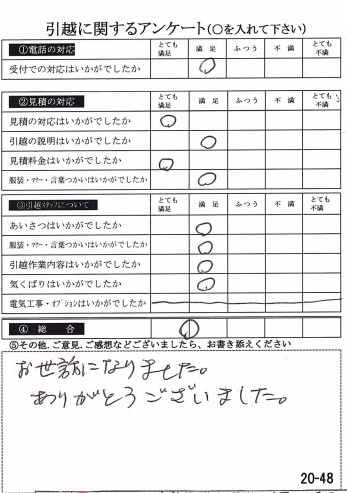 引越に関するアンケート(〇を入れて下さい)
①電話の対応 とても満足 満足 ふつう 不満 とても不満
受付での対応はいかがでしたか
②見積の対応 とても満足 満足 ふつう 不満 とても不満
見積の対応はいかがでしたか
引越の説明はいかがでしたか
見積料金はいかがでしたか
服装・マナー・言葉つかいはいかがでしたか
③引越スタッフについて とても満足 満足 ふつう 不満 とても不満
あいさつはいかがでしたか
服装・マナー・言葉つかいはいかがでしたか
引越作業内容はいかがでしたか
気くばりはいかがでしたか
電気工事・オプションはいかがでしたか
④ 総 合
⑤その他、ご意見、ご感想などございましたら、お書き添えください
お世話になりました。
ありがとうございました。
20-48